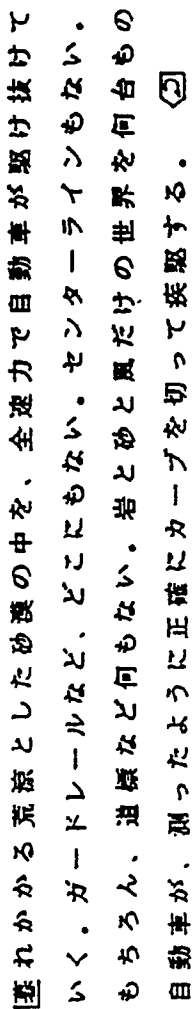 暮れかかる荒涼とした砂漠の中を、全速力で自動車が駆け抜けて
いく。ガードレールなど、どこにもない。センターラインもない。
もちろん、道標など何もない。岩と砂と風だけの世界を何台もの
自動車が、測ったように正確にカーブを切って疾駆する。